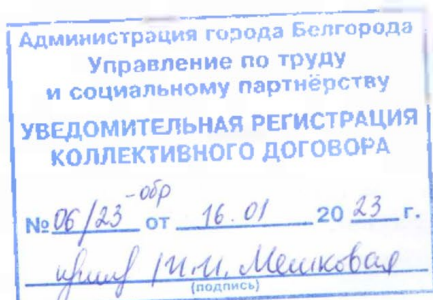 Администрация города Белгорода
Управление по труду
и социальному партнёрству
УВЕДОМИТЕЛЬНАЯ РЕГИСТРАЦИЯ
КОЛЛЕКТИВНОГО ДОГОВОРА
№ 06/23-обр от 16.01 2023 г.
И.И. Мешковая
(подпись)